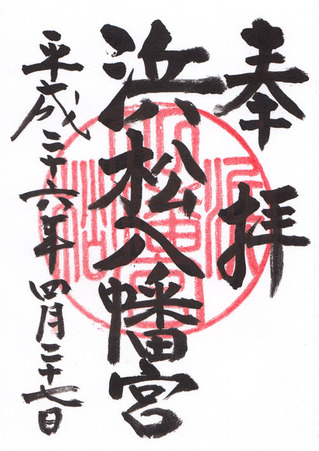 奉拝
浜松八幡宮
平成二十六年四月二十七日